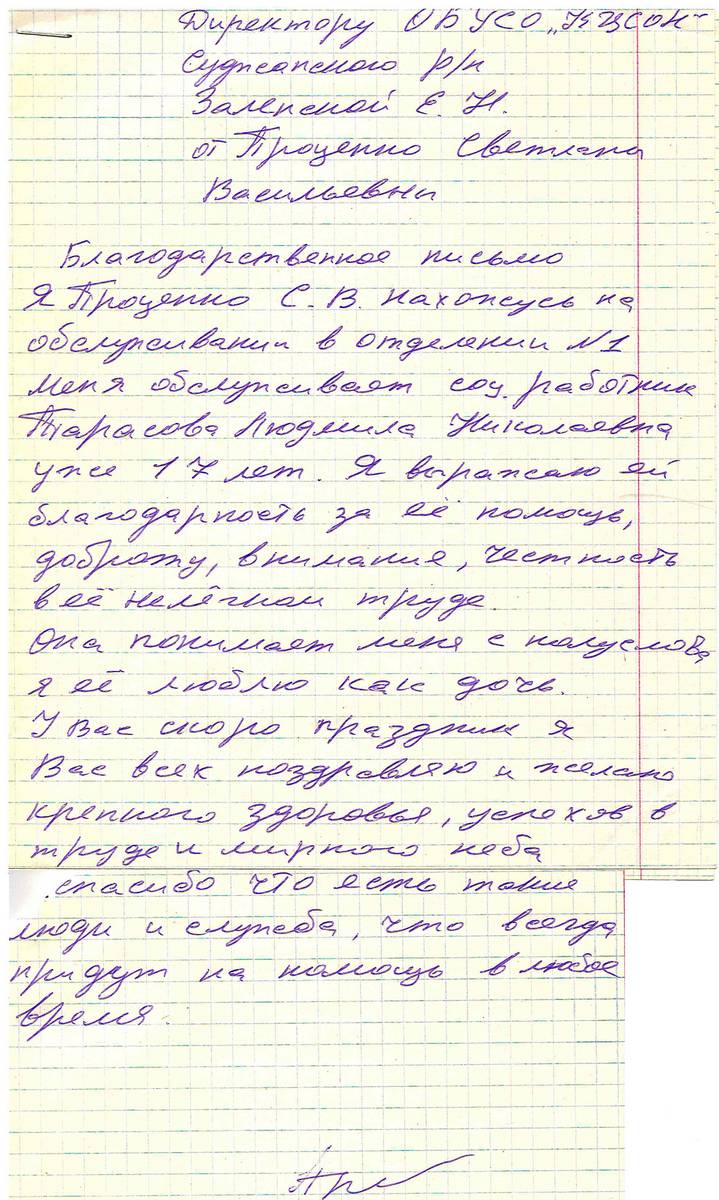 Директору ОБУСО „КЦСОН"
Суджанского р/н
Заленской Е. Н.
от Проценко Светлана
Васильевны
Благодарственное письмо
Я Проценко С. В. нахожусь на
обслуживании в отделении №1
меня обслуживает соц. работник
Тарасова Людмила Николаевна
уже 17 лет. Я выражаю ей
благодарность за её помощь,
доброту, внимание, честность
в её нелёгком труде.
Она понимает меня с полуслова
я её люблю как дочь.
У Вас скоро праздник я
Вас всех поздравляю и желаю
крепкого здоровья, успехов в
труде и мирного неба
спасибо что есть такие
люди и служба, что всегда
придут на помощь в любое
время.